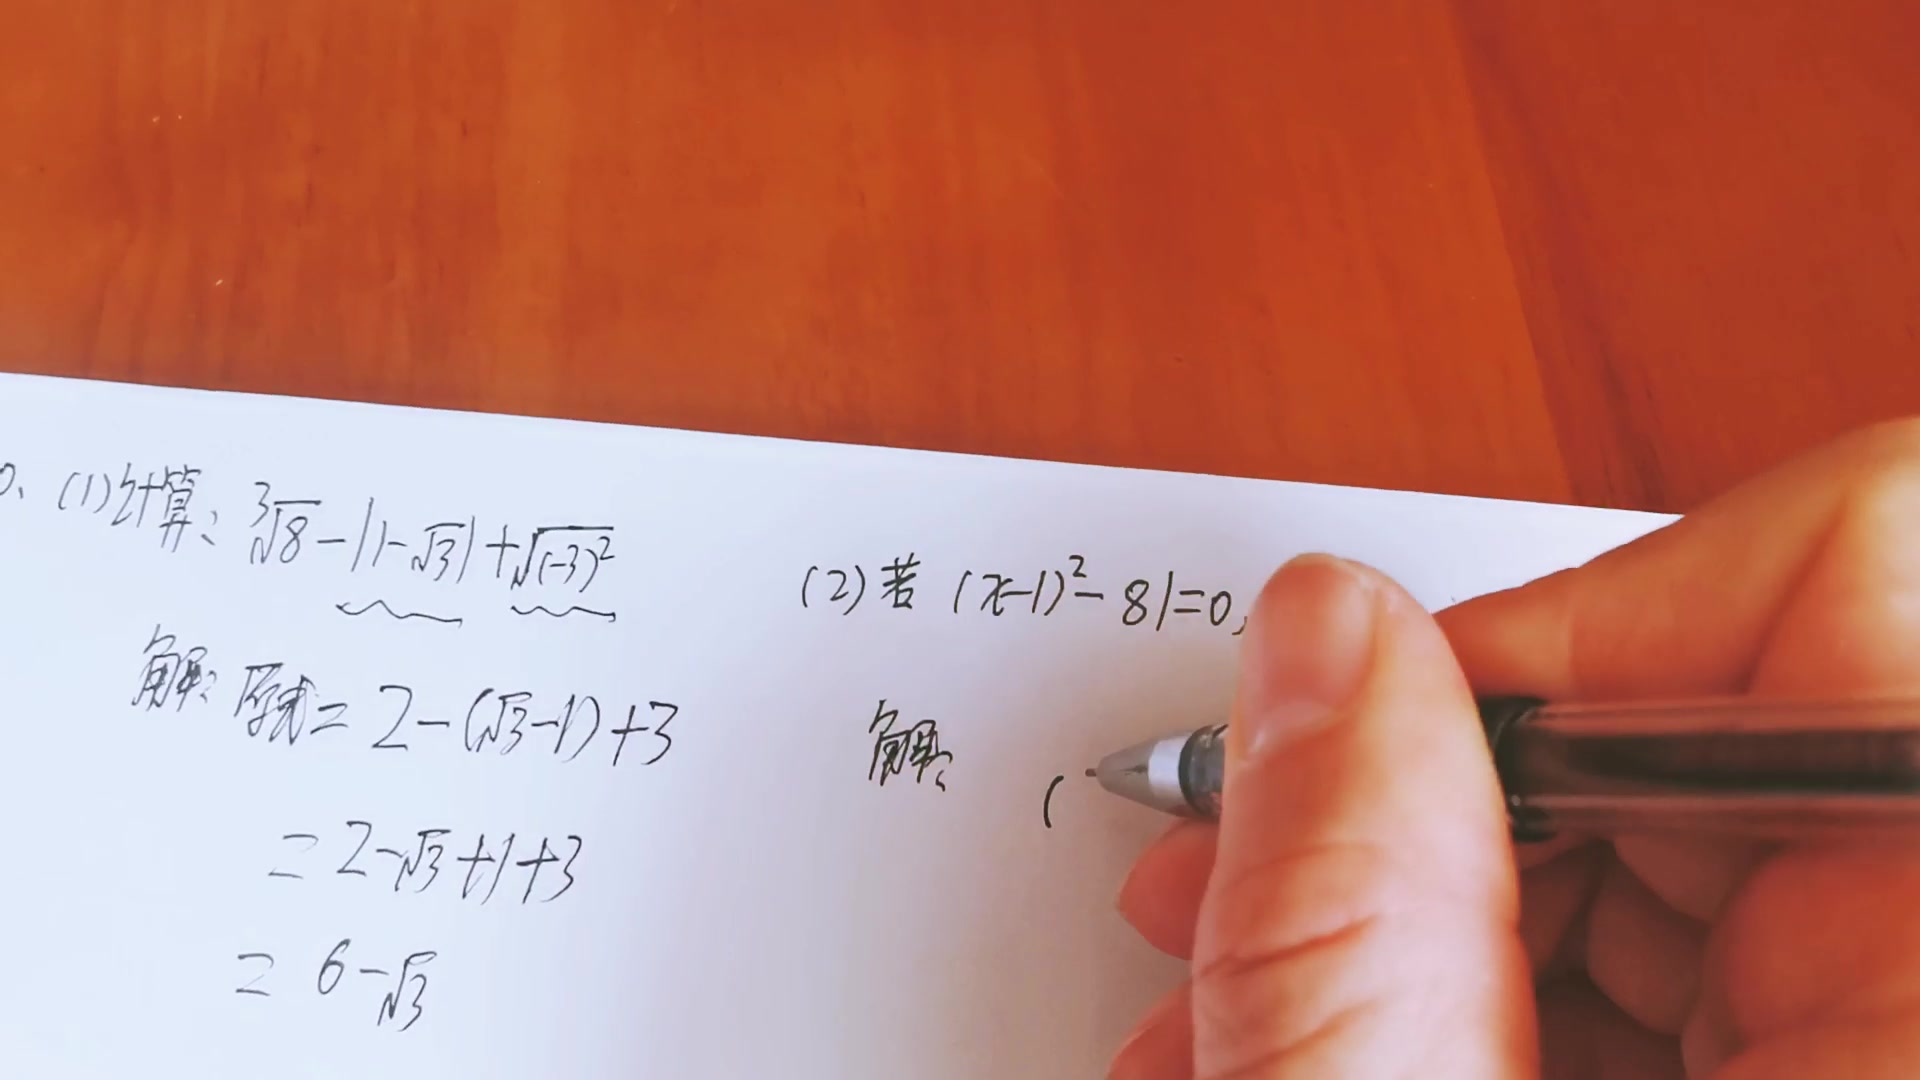 0、(1)计算：³√8-|1-√3|+√(-3)²
解：原式=2-(√3-1)+3
=2-√3+1+3
=6-√3
(2)若 (x-1)²-81=0,
解：
(